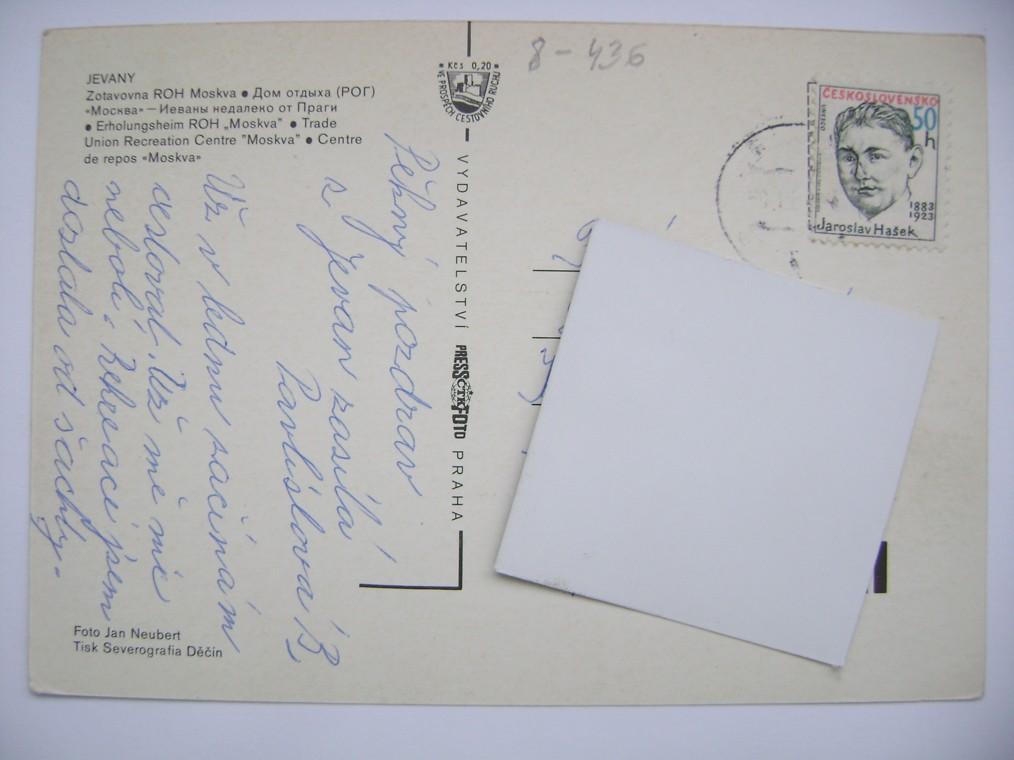 8-436
JEVANY
Zotavovna ROH Moskva ● Дом отдыха (РОГ)
«Москва» — Иеваны недалеко от Праги
● Erholungsheim ROH „Moskva" ● Trade
Union Recreation Centre "Moskva" ● Centre
de repos «Moskva»
* Kčs 0,20 *
VE PROSPĚCH CESTOVNÍHO RUCHU
VYDAVATELSTVÍ PRESSFOTO PRAHA
ČTK
ČESKOSLOVENSKO
50
h
UNESCO
1883
1923
Jaroslav Hašek
Pěkný pozdrav
z Jevan zasílá
Pavlišlova B,
Už v lednu začínám
cestovat. Už mě nic
nebolí. Rekreaci jsem
dostala od šachty.
Foto Jan Neubert
Tisk Severografia Děčín